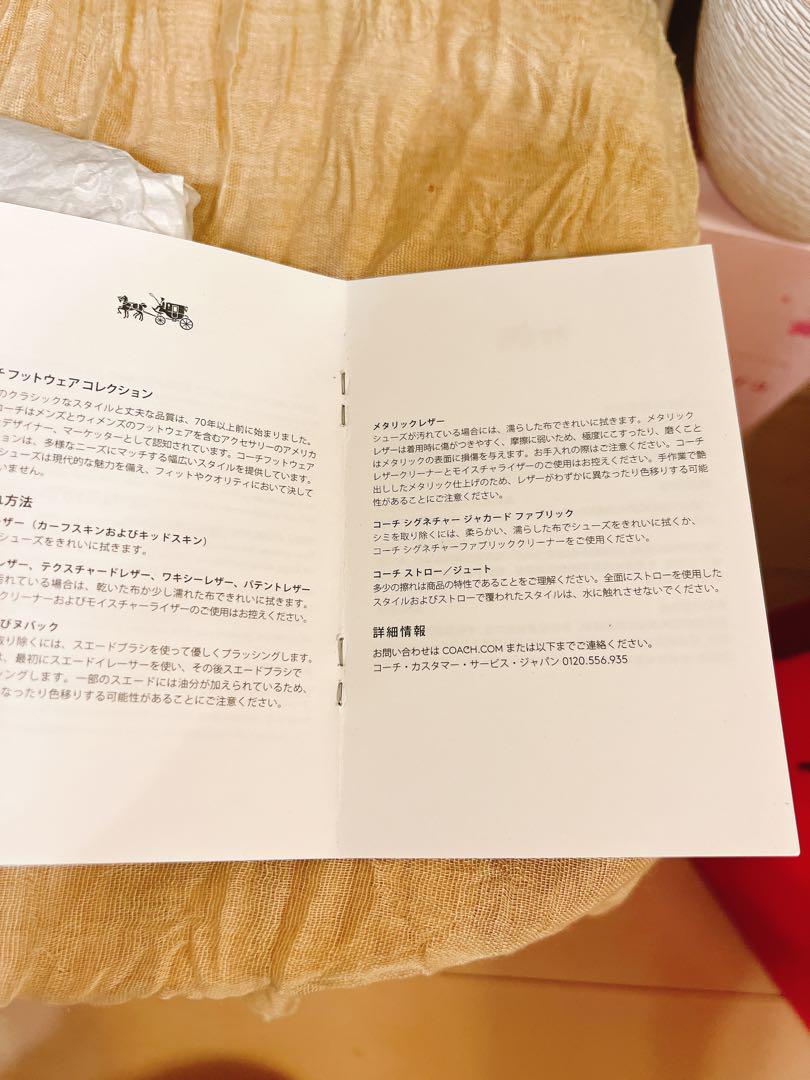 フットウェア コレクション
のクラシックなスタイルと丈夫な品質は、70年以上前に始まりました。
コーチはメンズとウィメンズのフットウェアを含むアクセサリーのアメリカ
デザイナー、マーケッターとして認知されています。コーチフットウェア
ションは、多様なニーズにマッチする幅広いスタイルを提供しています。
シューズは現代的な魅力を備え、フィットやクオリティにおいて決して
いません。
れ方法
ザー（カーフスキンおよびキッドスキン）
シューズをきれいに拭きます。
レザー、テクスチャードレザー、ワキシーレザー、パテントレザー
汚れている場合は、乾いた布か少し濡れた布できれいに拭きます。
クリーナーおよびモイスチャーライザーのご使用はお控えください。
びヌバック
取り除くには、スエードブラシを使って優しくブラッシングします。
は、最初にスエードイレーサーを使い、その後スエードブラシで
シングします。一部のスエードには油分が加えられているため、
なったり色移りする可能性があることにご注意ください。
メタリックレザー
シューズが汚れている場合には、濡らした布できれいに拭きます。メタリック
レザーは着用時に傷がつきやすく、摩擦に弱いため、極度にこすったり、磨くこと
はメタリックの表面に損傷を与えます。お手入れの際はご注意ください。コーチ
レザークリーナーとモイスチャライザーのご使用はお控えください。手作業で艶
出ししたメタリック仕上げのため、レザーがわずかに異なったり色移りする可能
性があることにご注意ください。
コーチ シグネチャー ジャカード ファブリック
シミを取り除くには、柔らかい、濡らした布でシューズをきれいに拭くか、
コーチ シグネチャーファブリッククリーナーをご使用ください。
コーチ ストロー／ジュート
多少の擦れは商品の特性であることをご理解ください。全面にストローを使用した
スタイルおよびストローで覆われたスタイルは、水に触れさせないでください。
詳細情報
お問い合わせは COACH.COM または以下までご連絡ください。
コーチ・カスタマー・サービス・ジャパン 0120.556.935